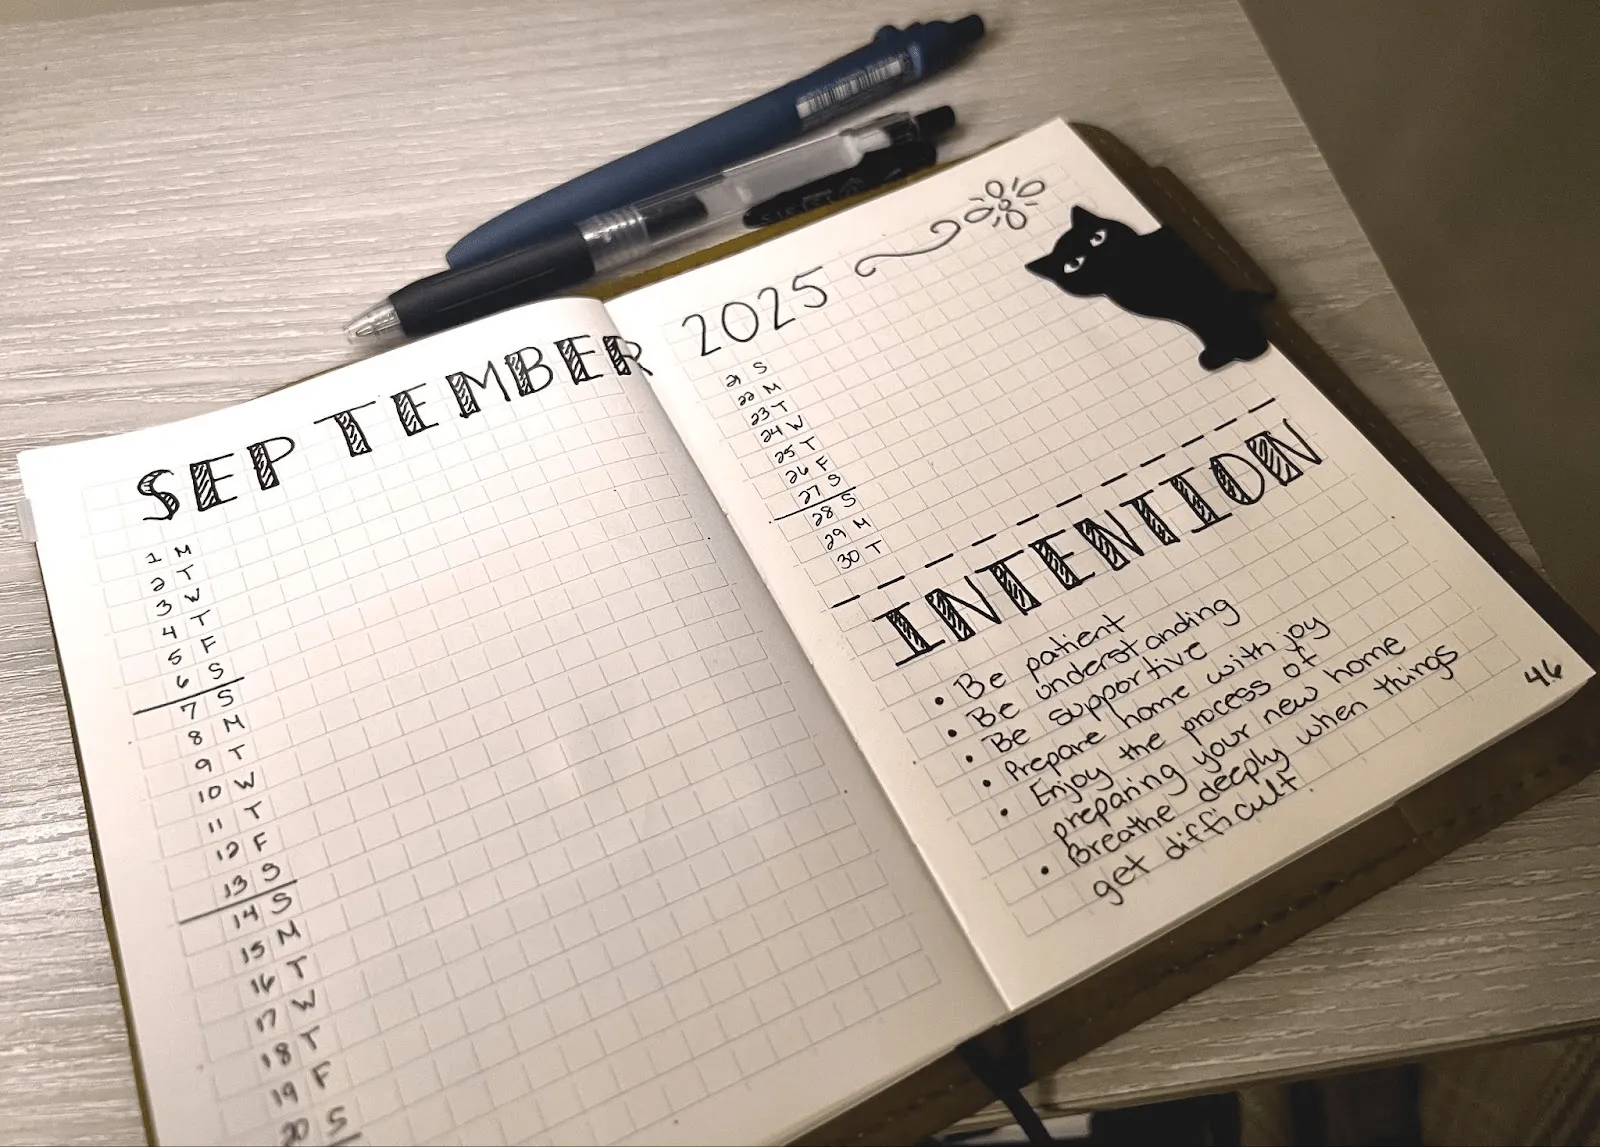 SEPTEMBER
1 M
2 T
3 W
4 T
5 F
6 S
7 S
8 M
9 T
10 W
11 T
12 F
13 S
14 S
15 M
16 T
17 W
18 T
19 F
20 S
2025
21 S
22 M
23 T
24 W
25 T
26 F
27 S
28 S
29 M
30 T
INTENTION
• Be patient
• Be understanding
• Be supportive
• Prepare home with joy
• Enjoy the process of
preparing your new home
• Breathe deeply when things
get difficult.
46